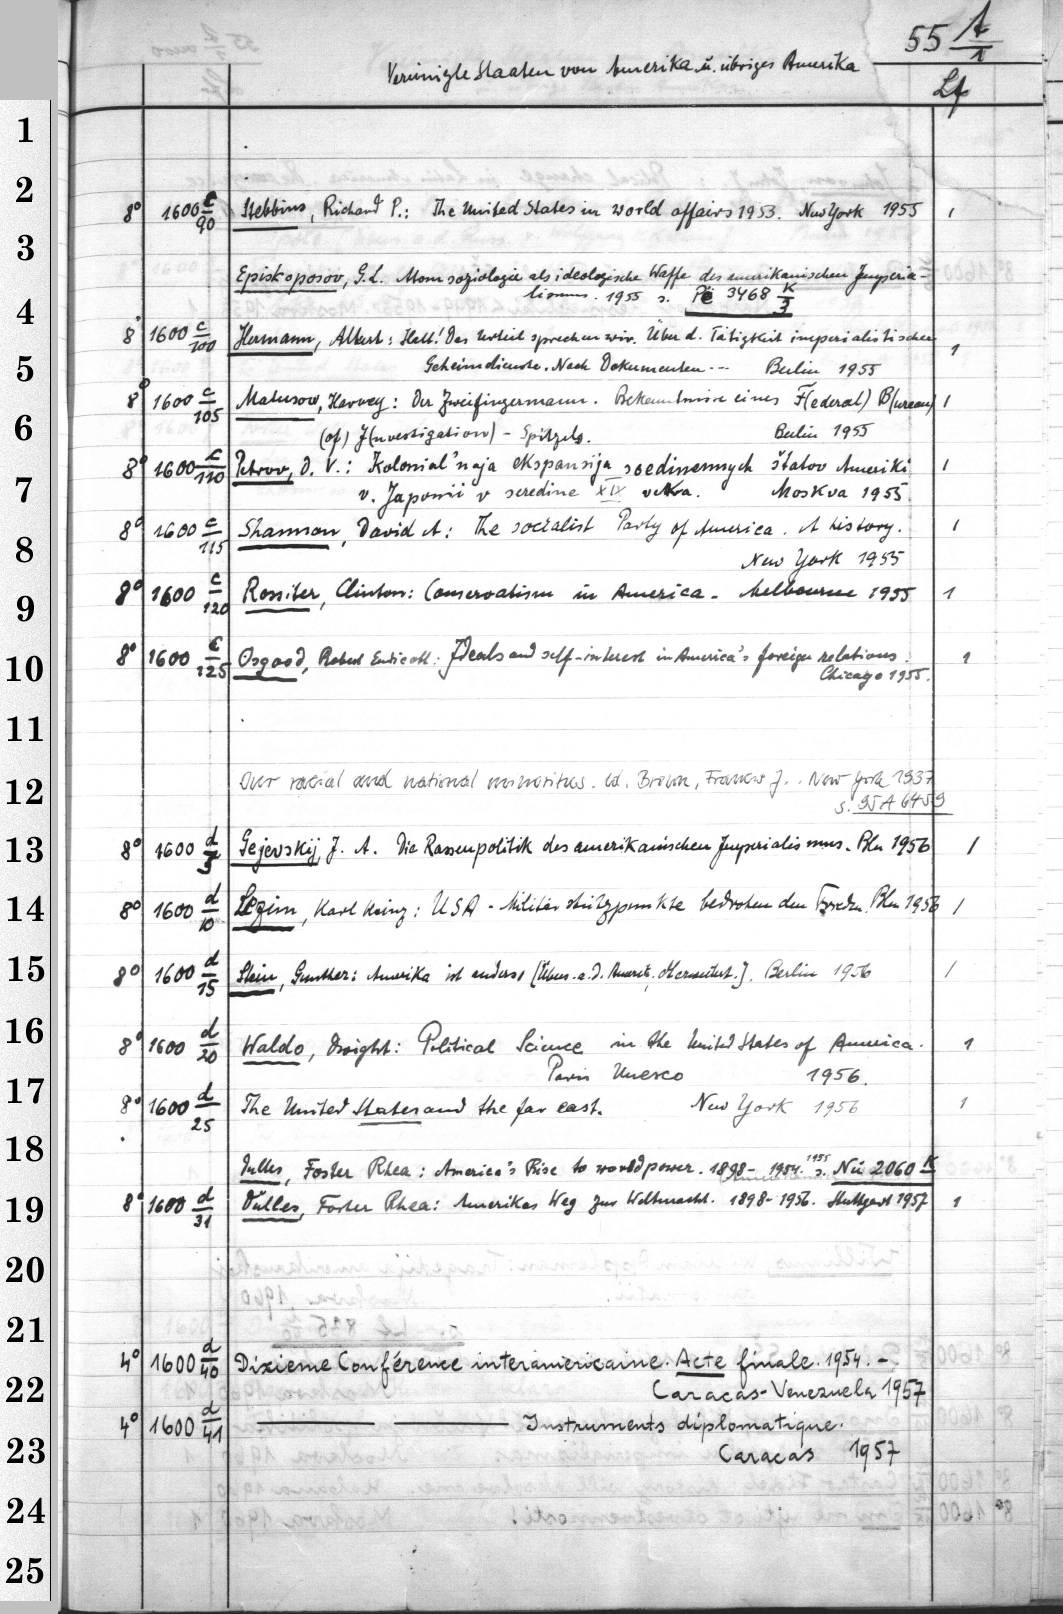 55 A/1
Vereinigte Staaten von Amerika u. übriges Amerika
Lf
1
2
8° 1600 c/90 Stebbins, Richard P.: The United States in world affairs 1953. New York 1955 1
3
Episkoposov, G.L. Mom soziologie als ideologische Waffe des amerikanischen Imperia-
lismus. 1955 s. Pe 3468 K/3
4
8° 1600 c/100 Hermann, Albert: Halt! Das Urteil sprechen wir. Über d. Tätigkeit imperialistischer 1
5
Geheimdienste. Nach Dokumenten -- Berlin 1955
8° 1600 c/105 Matusow, Harvey: Der Zweifingermann. Bekenntnisse eines F(ederal) B(ureau) 1
6
(of) I(nvestigation) - Spitzels. Berlin 1955
8° 1600 c/110 Petrov, D. V.: Kolonial'naja ekspansija soedinennych štatov Ameriki 1
7
v. Japonii v seredine XIX veka. Moskva 1955.
8° 1600 c/115 Shannon, David A: The socialist Party of America. A history. 1
8
New York 1955
9
8° 1600 c/120 Rossiter, Clinton: Conservatism in America - Melbourne 1955 1
10
8° 1600 c/125 Osgood, Robert Endicott: Ideals and self-interest in America's foreign relations. 1
Chicago 1955.
11
12
Our racial and national minorities. ed. Brown, Francis J. . New York 1937
s. 95 A 6459
13
8° 1600 d/3 Gejevskij, J. A. Die Rassenpolitik des amerikanischen Imperialismus. Bln 1956 1
14
8° 1600 d/10 Legim, Karl Heinz: USA - Militärstützpunkte bedrohen den Frieden. Bln 1956 1
15
8° 1600 d/15 Stein, Gunther: Amerika ist anders [Übers. a. d. Amerik. ]. Berlin 1956 1
16
8° 1600 d/20 Waldo, Dwight: Political Science in the United States of America. 1
Paris Unesco 1956.
17
8° 1600 d/25 The United States and the far east. New York 1956 1
18
Dulles, Foster Rhea: America's Rise to world power. 1898-1954. 1955 s. Nu 2060 K
19
8° 1600 d/31 Dulles, Foster Rhea: Amerikas Weg zur Weltmacht. 1898-1956. Stuttgart 1957 1
20
21
4° 1600 d/40 Dixieme Conférence interamericaine. Acte finale. 1954. -
22
Caracas-Venezuela 1957
4° 1600 d/41 ——— ——— Instruments diplomatique.
23
Caracas 1957
24
25